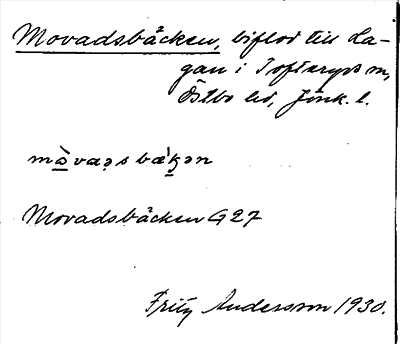 Movadsbäcken, biflod till La-
gan i Tofteryds sn,
Östbo hd, Jönk. l.
mə̀vaəs bæ̀kən
Movadsbäcken G27
Fritz Andersson 1930.